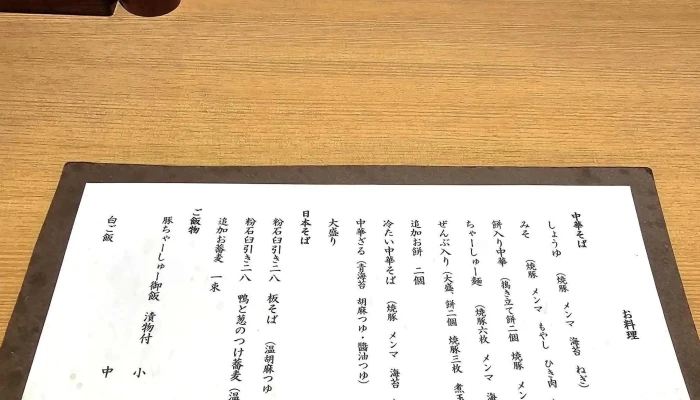 お料理
中華そば
しょうゆ （焼豚 メンマ 海苔 ねぎ）
みそ （焼豚 メンマ もやし ひき肉
餅入り中華 （搗き立て餅二個 焼豚 メン
ちゃーしゅー麺 （焼豚六枚 メンマ 海
ぜんぶ入り （大盛、餅二個 焼豚三枚 煮玉
追加お餅 二個
冷たい中華そば （焼豚 メンマ 海苔
中華ざる （青海苔 胡麻つゆ・醬油つゆ）
大盛り
日本そば
粉石臼引き二八 板そば （温胡麻つゆ
粉石臼引き二八 鴨と葱のつけ蕎麦 （温
追加お蕎麦 一束
ご飯物
豚ちゃーしゅー御飯 漬物付 小
白ご飯 中